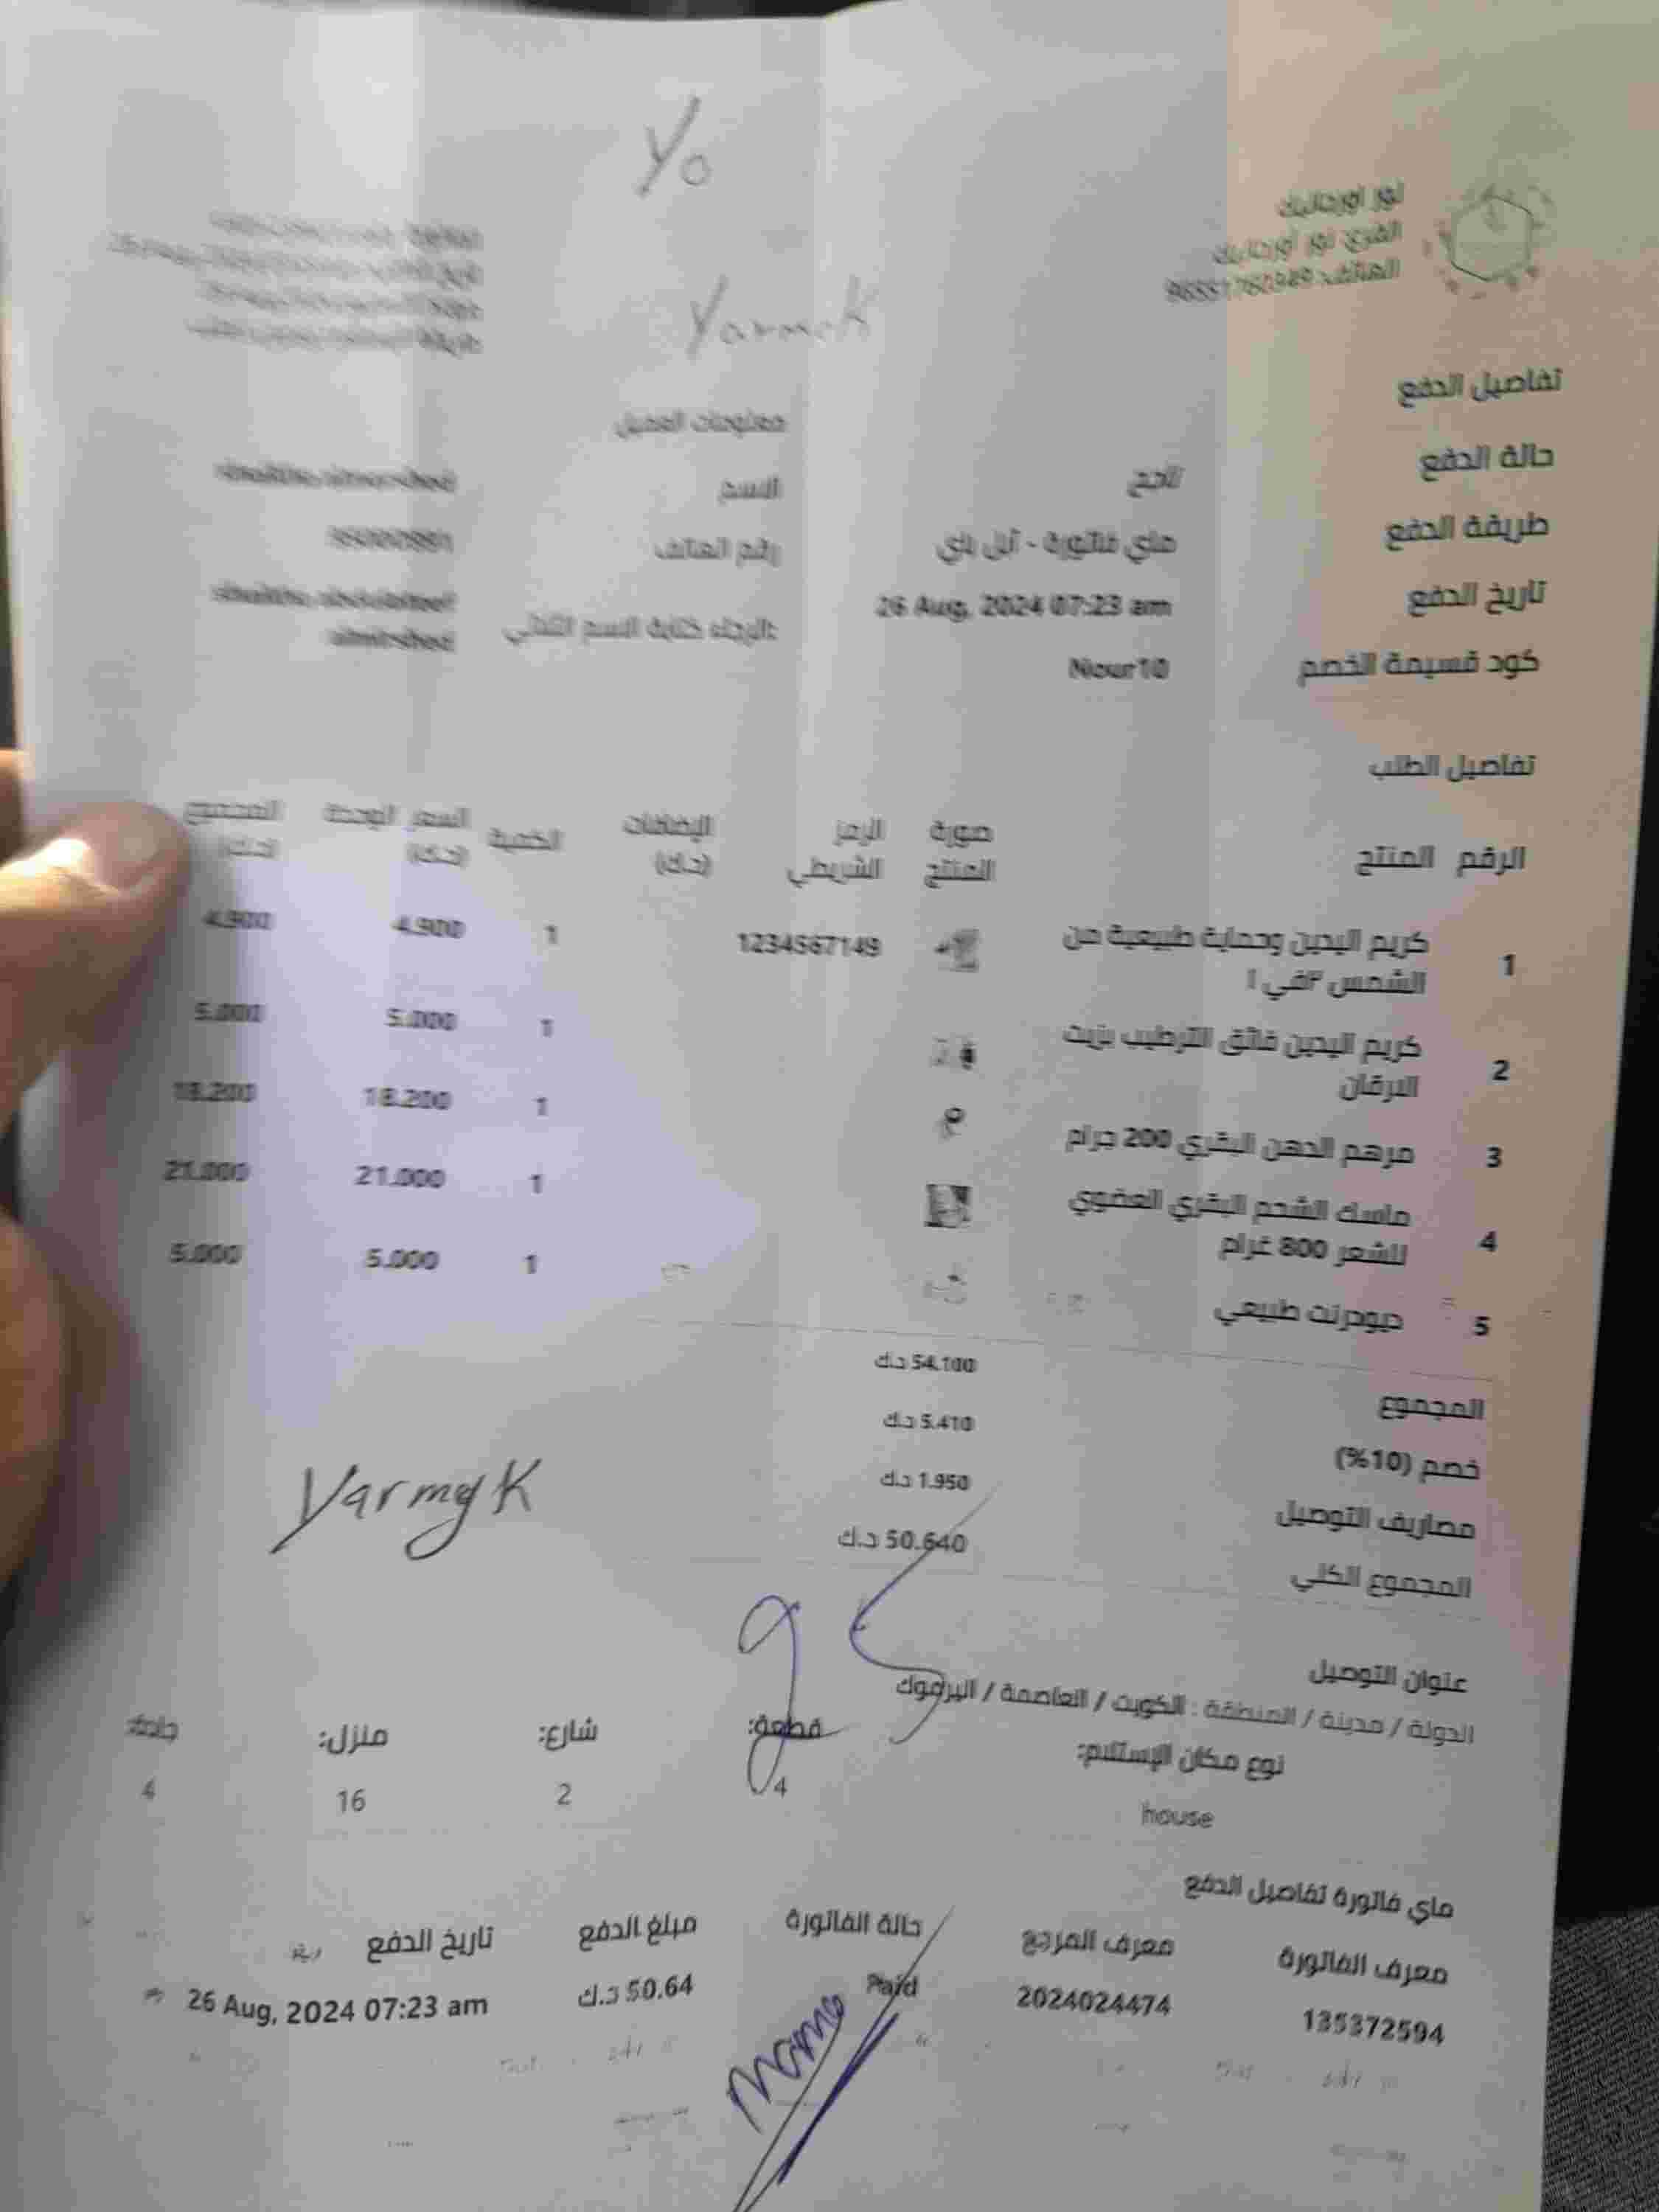 Yo
نور اورجانيك
الفرع: نور أورجانيك
Yarmok
تفاصيل الدفع
معلومات العميل
حالة الدفع ناجح
الاسم
طريقة الدفع ماي فاتورة - أبل باي
رقم الهاتف
تاريخ الدفع 26 Aug, 2024 07:23 am
الرجاء كتابة الاسم الثلاثي:
كود قسيمة الخصم Nour10
تفاصيل الطلب
الرقم المنتج صورة المنتج الرمز الشريطي الإضافات (د.ك) الكمية السعر الوحدة (د.ك) المجموع (د.ك)
1 كريم اليدين وحماية طبيعية من الشمس ٣في ١ 1234567149 1 4.900 4.900
2 كريم اليدين فائق الترطيب بزيت الارقان 1 5.000 5.000
3 مرهم الدهن البقري 200 جرام 1 18.200 18.200
4 ماسك الشحم البقري العضوي للشعر 800 غرام 1 21.000 21.000
5 ديودرنت طبيعي 1 5.000 5.000
المجموع 54.100 د.ك
خصم (10%) 5.410 د.ك
مصاريف التوصيل 1.950 د.ك
المجموع الكلي 50.640 د.ك
Yarmyk
95
عنوان التوصيل
الدولة / مدينة / المنطقة : الكويت / العاصمة / اليرموك
نوع مكان الإستلام: قطعة: شارع: منزل: جادة:
house 4 2 16 4
ماي فاتورة تفاصيل الدفع
معرف الفاتورة معرف المرجع حالة الفاتورة مبلغ الدفع تاريخ الدفع
135372594 2024024474 Paid 50.64 د.ك 26 Aug, 2024 07:23 am